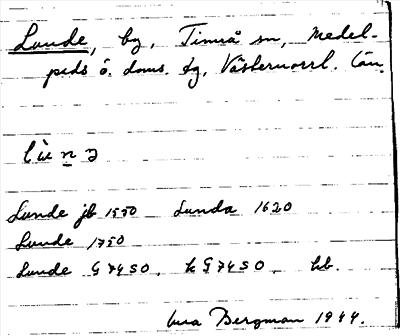 Lunde, by, Timrå sn, Medel-
pads ö. doms. sg, Västernorrl. län.
lùn̲ə
Lunde jb 1550 Lunda 1620
Lunde 1750
Lunde G 7450, k G 7450, hb.
Bergman 1944.